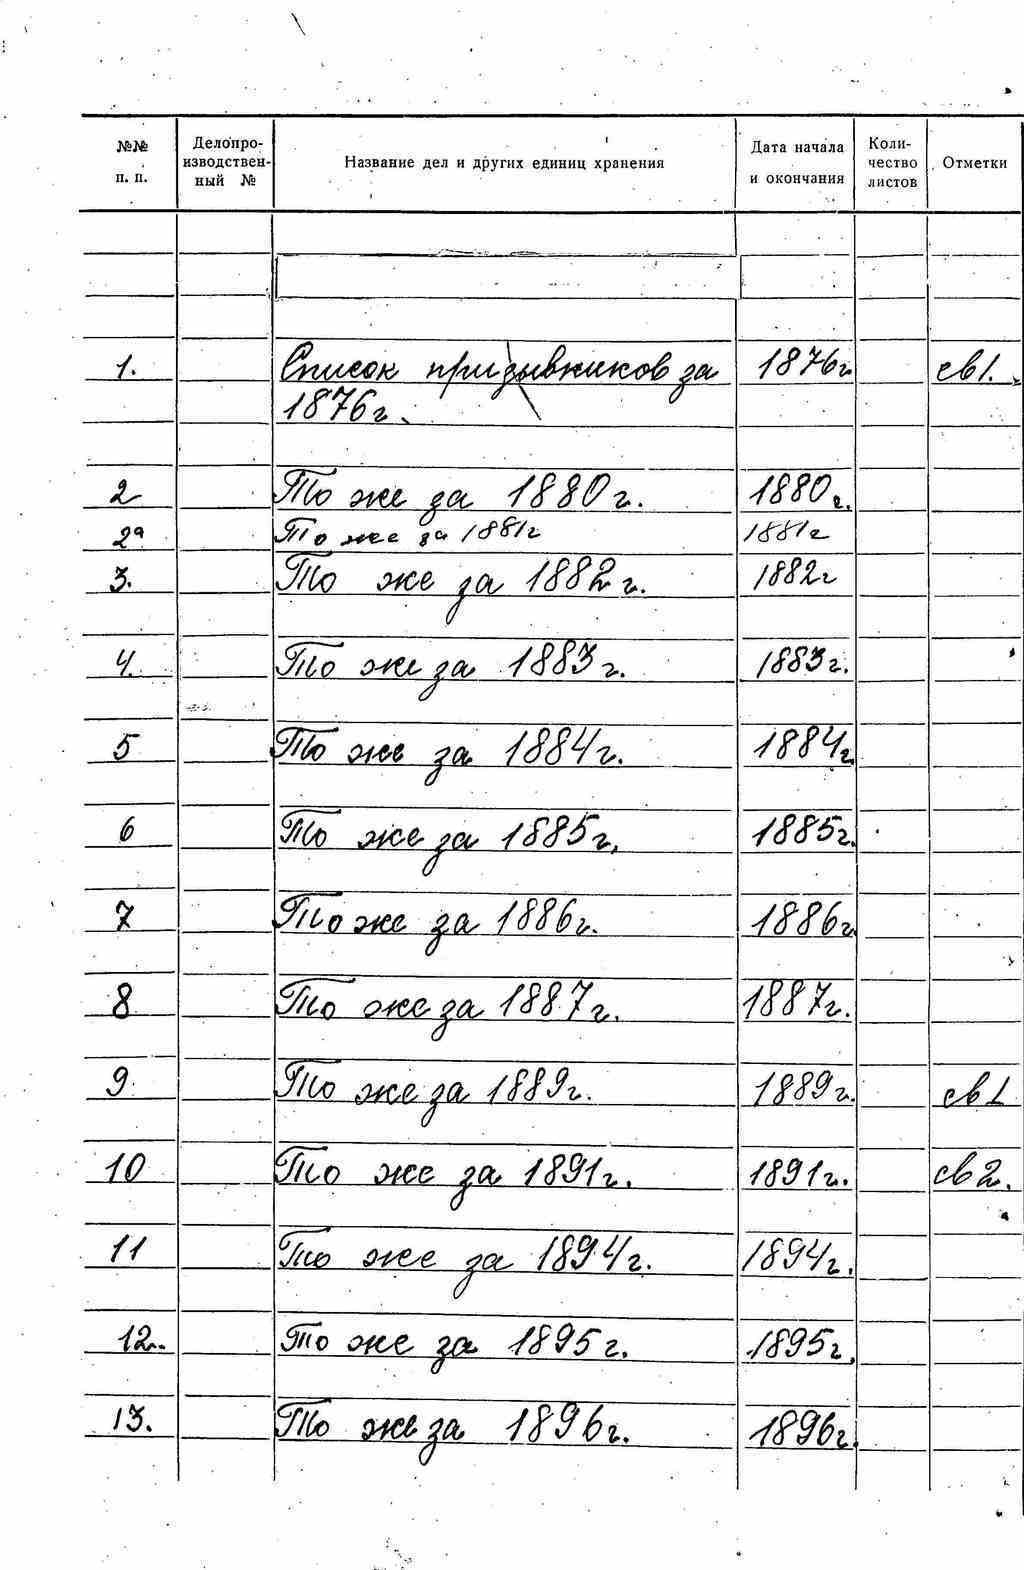 №№ п. п. Делопро- изводствен- ный № Название дел и других единиц хранения Дата начала и окончания Коли- чество листов Отметки
1. Список призывников за 1876г св1.
1876г.
2 То же за 1880г. 1880г.
2а То же за 1881г 1881г
3. То же за 1882г. 1882г
4. То же за 1883г. 1883г.
5 То же за 1884г. 1884г.
6 То же за 1885г. 1885г.
7 То же за 1886г. 1886г
8 То же за 1887г. 1887г.
9 То же за 1889г. 1889г. св1
10 То же за 1891г. 1891г. св2.
11 То же за 1894г. 1894г.
12. То же за 1895г. 1895г.
13. То же за 1896г. 1896г.